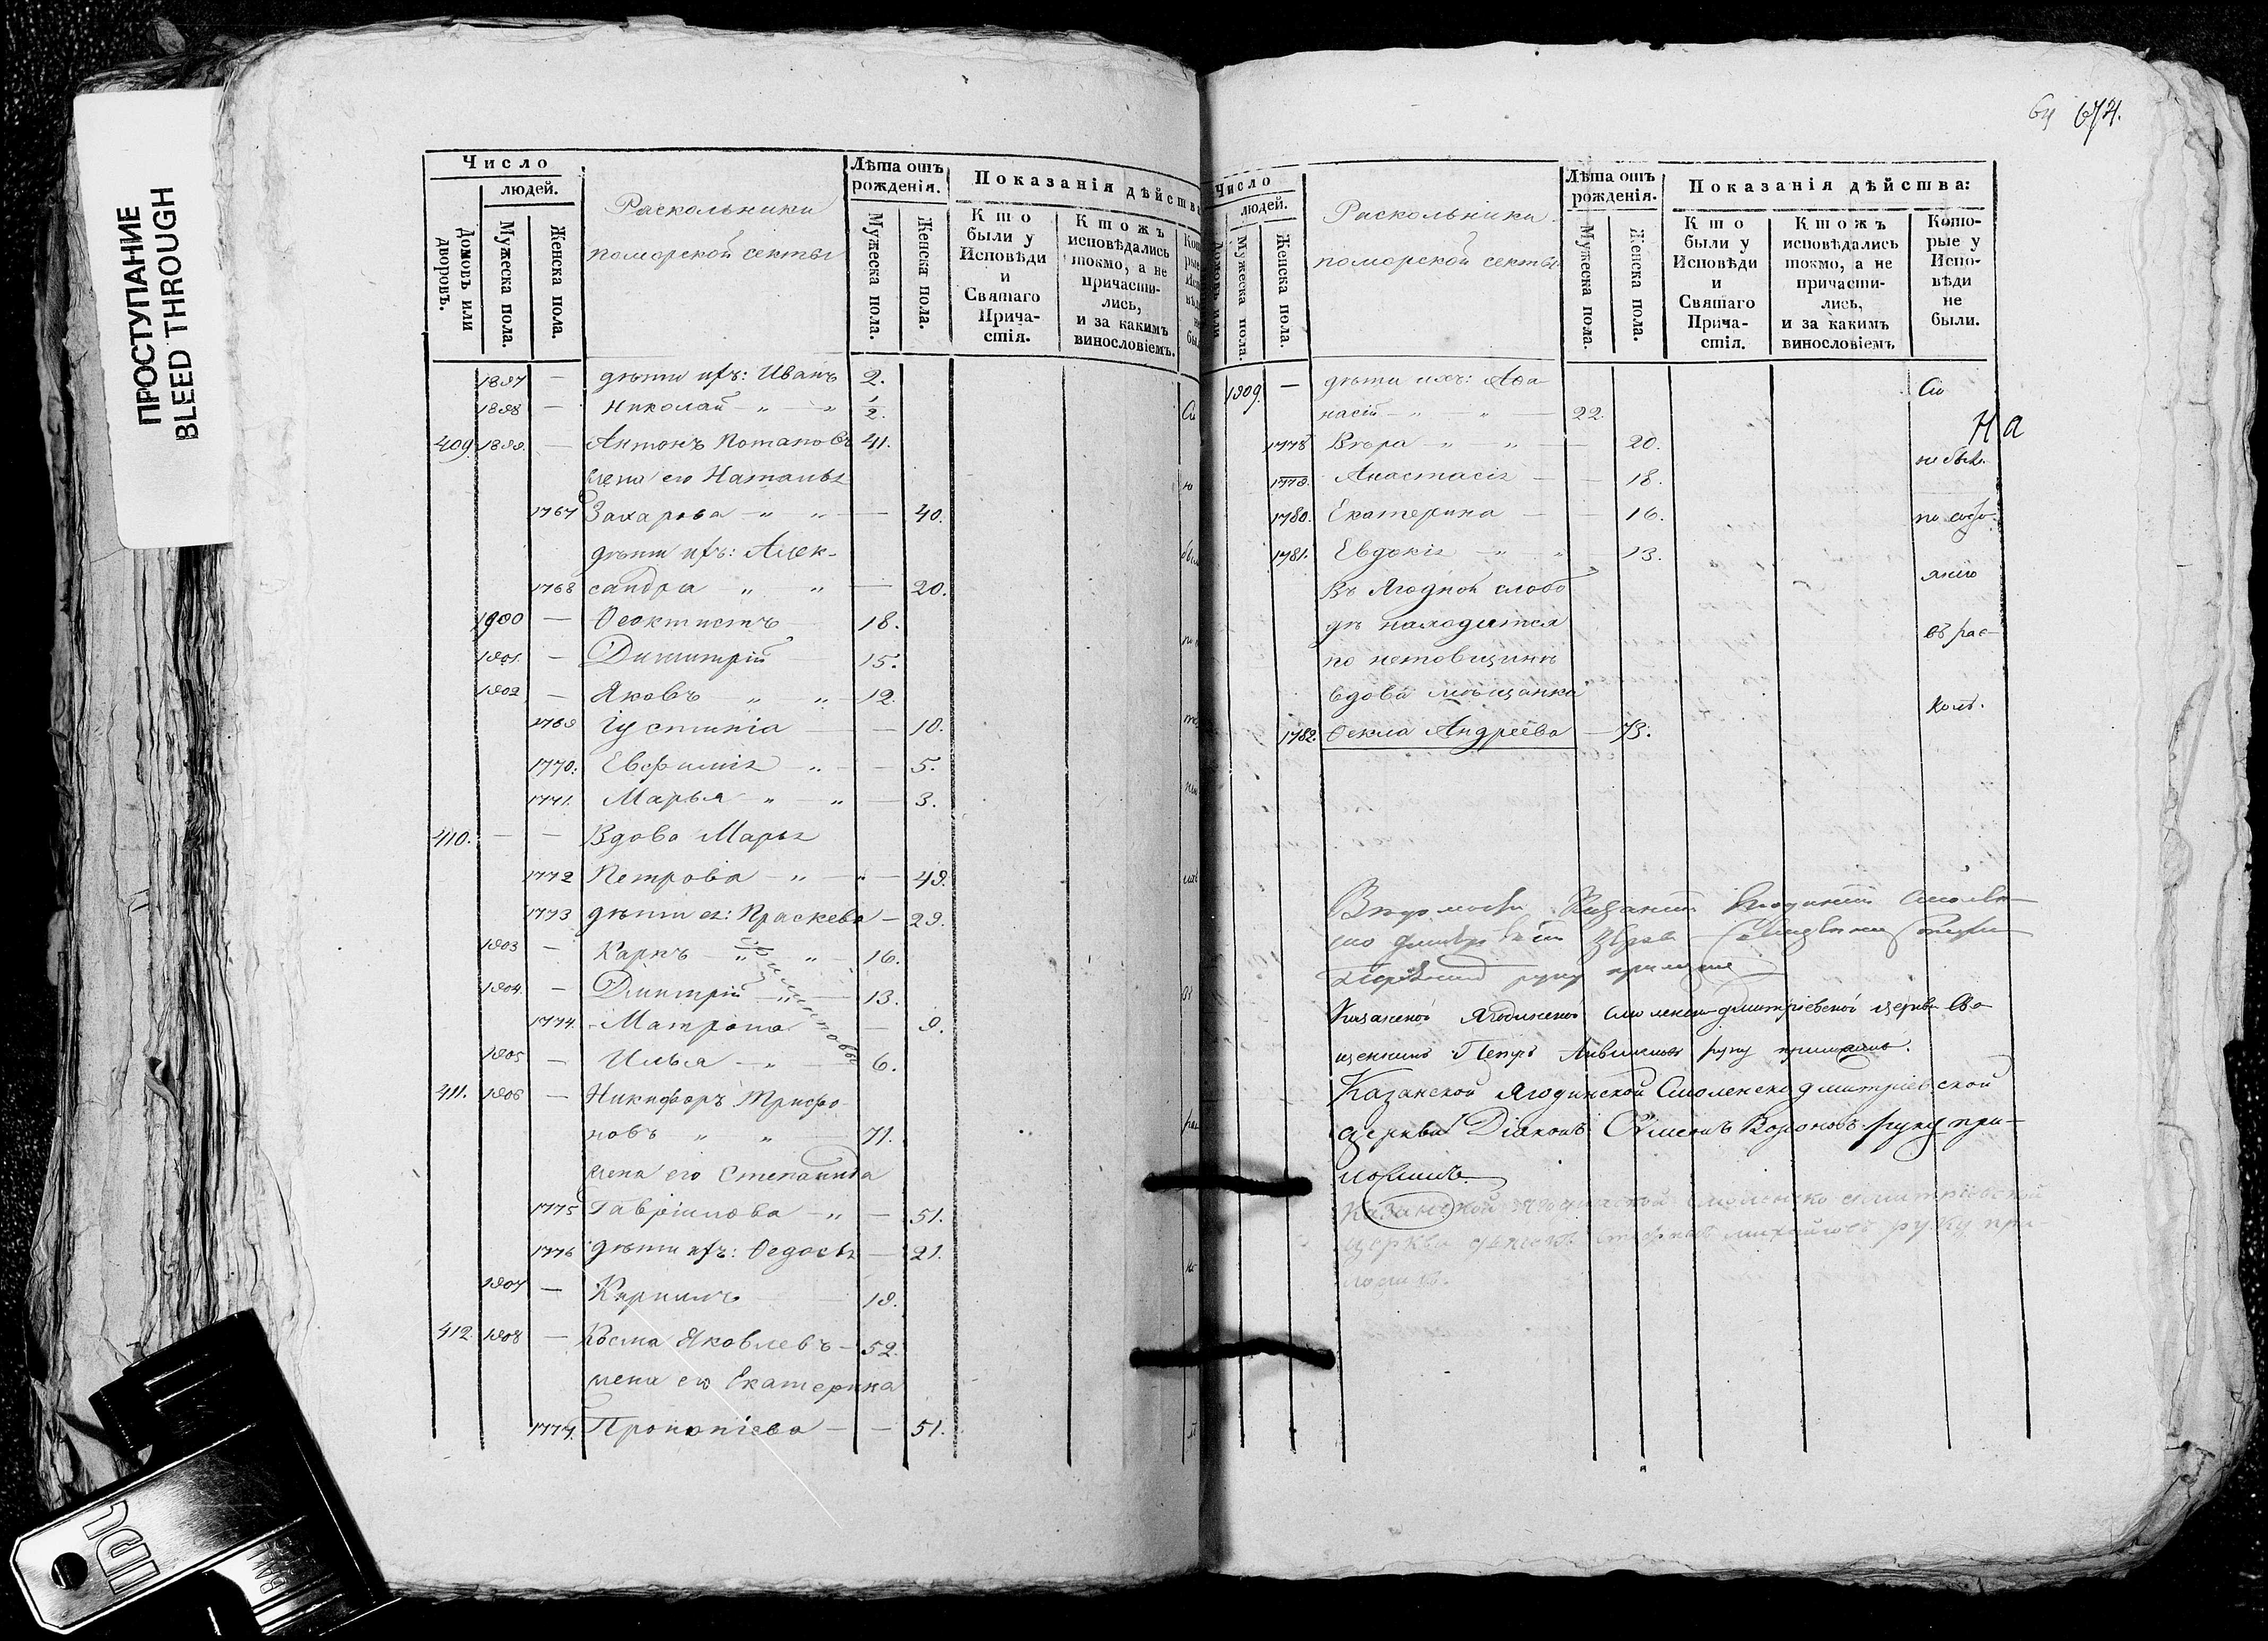 ПРОСТУПАНИЕ
BLEED THROUGH
Число
людей.
Домовъ или дворовъ.
Мужеска пола.
Женска пола.
Раскольники
поморской секты
Лѣта отъ
рожденія.
Мужеска пола.
Женска пола.
Показанія дѣйства
Кто
были у
Исповѣди
и
Святаго
Прича-
стія.
Ктожъ
исповѣдались
токмо, а не
причасти-
лись,
и за какимъ
винословіемъ.
1897 — дѣти ихъ: Иванъ 2.
1898 — Николай — „ — „ 1/2.
409. 1899. — Антонъ Потаповъ 41.
жена его Наталья
1767 Захарова — „ „ — 40.
дѣти ихъ: Алек-
1768 сандра „ „ — 20.
1900 — Ѳеоктистъ 18.
1901. — Димитрій 15.
1902 — Яковъ „ „ 12.
1769 Іустинія — 10.
1770. Евфимія „ — 5.
1771. Марья „ — „ — 3.
410. — — Вдова Марья
1772 Петрова — „ — „ — 49.
1773 дѣти ея: Праскева — 29.
1903 — Карпъ — „ „ 16.
1904. — Димитрій — „ 13.
1774. Матрона — 9.
1905 — Илья — „ 6.
411. 1906 — Никифоръ Трифо-
новъ „ „ 71.
жена его Степанида
1775 Гавріилова — „ — 51.
1776 дѣти ихъ: Ѳедосья — 21.
1907 — Кириллъ 19.
412. 1908 — Косма Яковлевъ — 52.
жена его Екатерина
1777. Прокопіева — — 51.
64 674.
Число
людей.
Мужеска пола.
Женска пола.
Раскольники
поморской секты.
Лѣта отъ
рожденія.
Мужеска пола.
Женска пола.
Показанія дѣйства:
Кто
были у
Исповѣди
и
Святаго
Прича-
стія.
Ктожъ
исповѣдались
токмо, а не
причасти-
лись,
и за какимъ
винословіемъ
Кото-
рые у
Испо-
вѣди
не
были.
1909. — дѣти ихъ: Аѳа-
насій — „ — „ — 22.
1778 Вѣра „ „ — 20.
1779. Анастасія — — 18.
1780. Екатерина — — 16.
1781. Евдокія — „ „ — 13.
Въ Ягодной слобо
дѣ находится
по нетовщинѣ
вдова мѣщанка
1782. Ѳекла Андреева — 73.
На
не были
въ рас-
кол.
руку
Казанской Ягодинской Смоленско-димитріевской церкви Свя-
щенникъ Петръ руку приложилъ.
Казанской Ягодинской Смоленско димитріевской
церкви Діаконъ Симеонъ Вороновъ руку при-
ложилъ.
Казанской ягодинской смоленско димитріевской
церкви михайловъ руку при-
ложилъ.